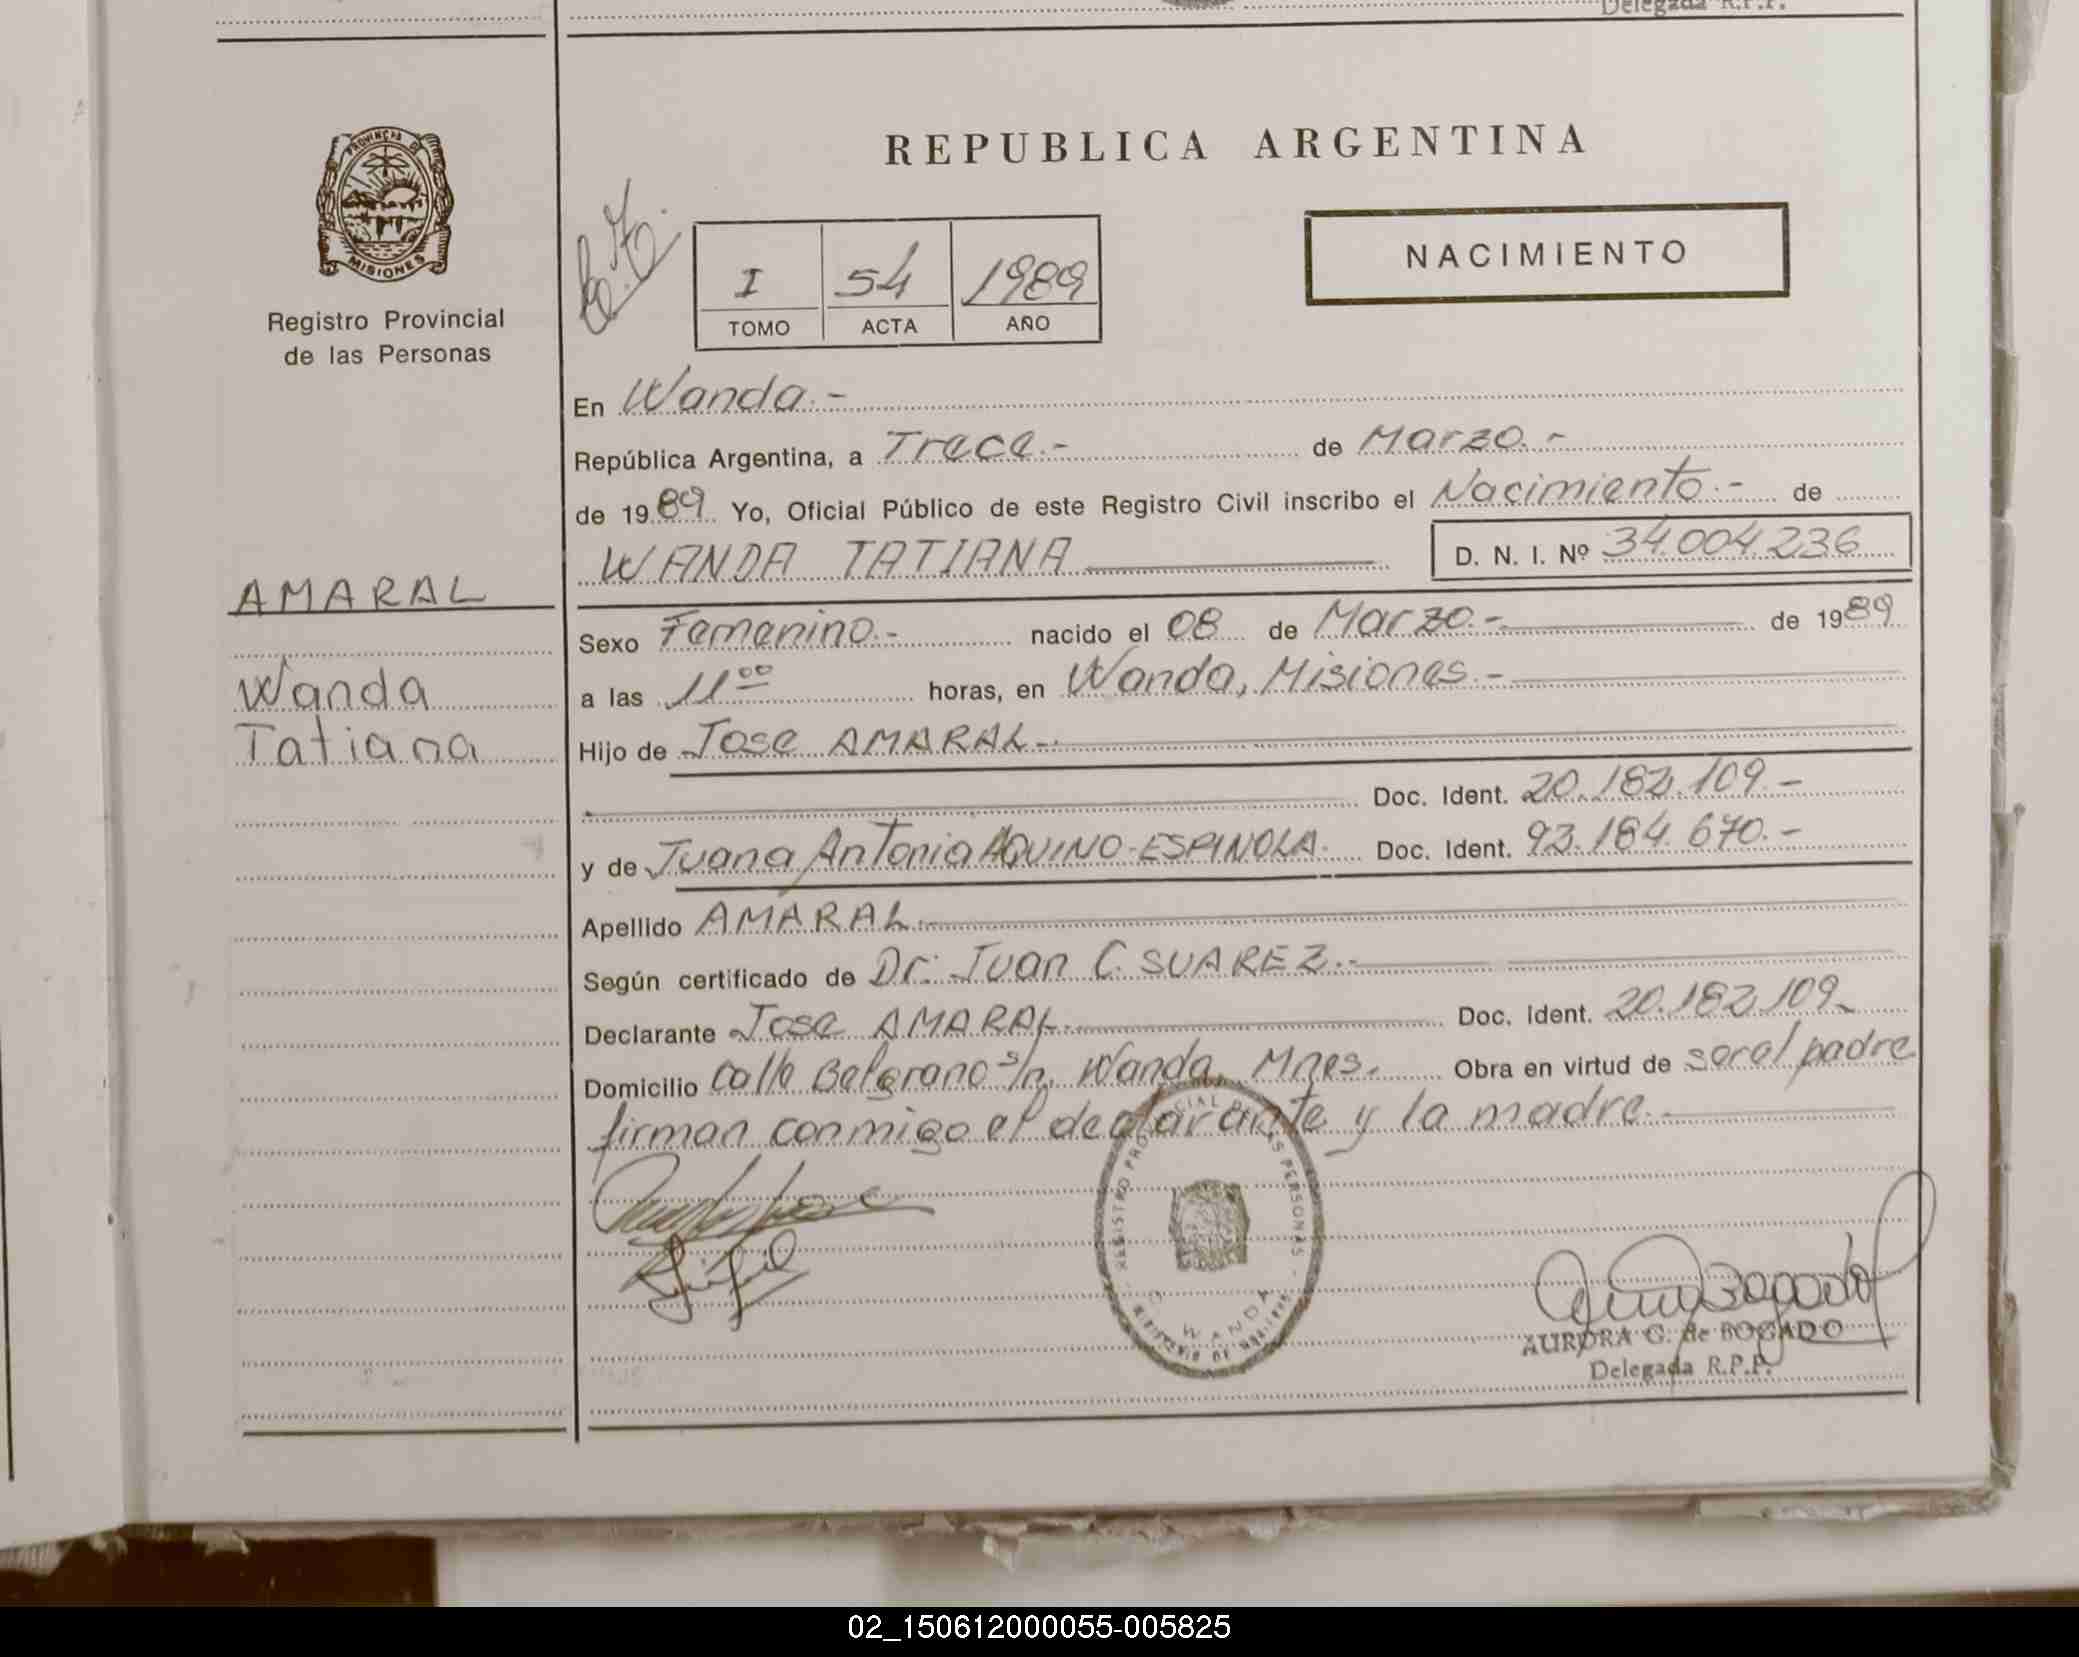 Delegada R.P.P.
PROVINCIA DE
MISIONES
Registro Provincial
de las Personas
AMARAL
Wanda
Tatiana
REPUBLICA ARGENTINA
I 54 1989
TOMO ACTA AÑO
NACIMIENTO
En Wanda.-
República Argentina, a Trece.- de Marzo.-
de 1989 Yo, Oficial Público de este Registro Civil inscribo el Nacimiento.- de
WANDA TATIANA D. N. I. Nº 34.004.236
Sexo Femenino.- nacido el 08 de Marzo.- de 1989
a las 11 00 horas, en Wanda, Misiones.-
Hijo de Jose AMARAL.-
Doc. Ident. 20.182.109.-
y de Juana Antonia AQUINO-ESPINOLA. Doc. Ident. 93.184.670.-
Apellido AMARAL.
Según certificado de Dr. Juan C. SUAREZ.-
Declarante Jose AMARAL. Doc. Ident. 20.182.109.
Domicilio Calle Belgrano s/n. Wanda, Mnes. Obra en virtud de ser el padre
firman conmigo el declarante y la madre.
REGISTRO PROVINCIAL DE LAS PERSONAS
WANDA
AURORA G. de BOGADO
Delegada R.P.P.
02_150612000055-005825